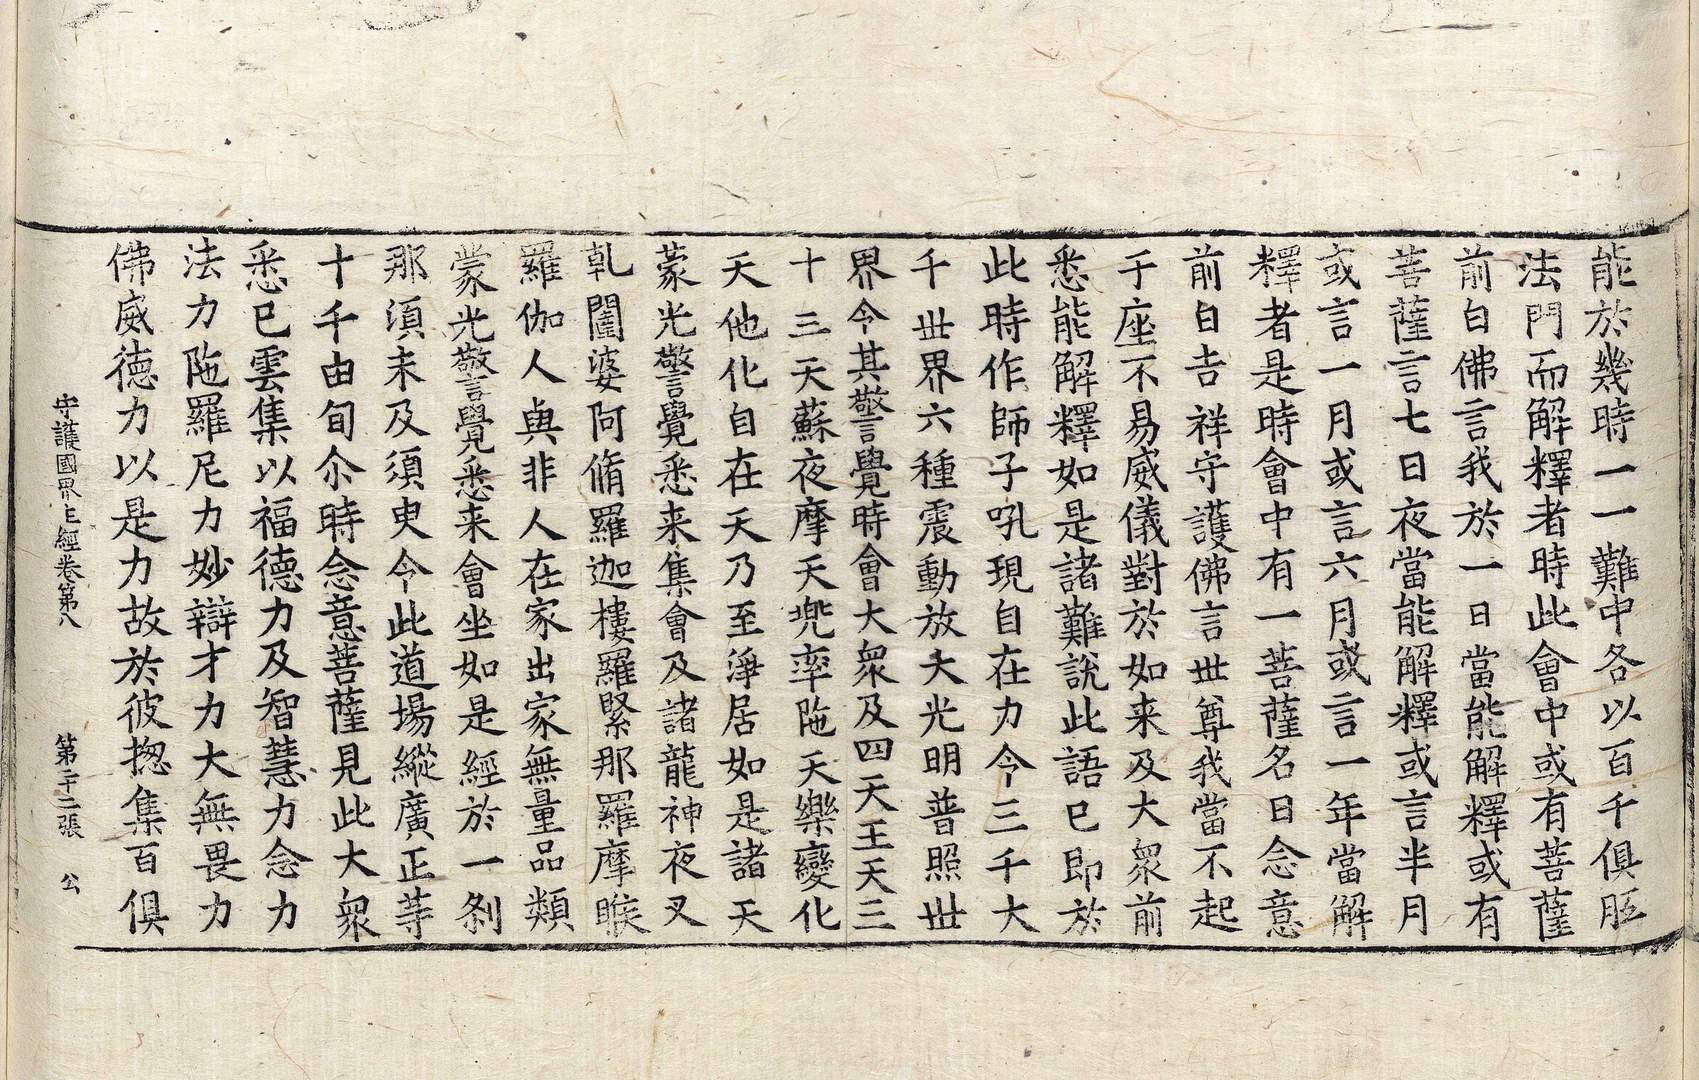 能於幾時一一難中各以百千俱胝
法門而解釋者時此會中或有菩薩
前白佛言我於一日當能解釋或有
菩薩言七日夜當能解釋或言半月
或言一月或言六月或言一年當解
釋者是時會中有一菩薩名曰念意
前白吉祥守護佛言世尊我當不起
于座不易威儀對於如来及大衆前
悉能解釋如是諸難說此語已即於
此時作師子吼現自在力令三千大
千世界六種震動放大光明普照世
界令其警覺時會大衆及四天王天三
十三天蘇夜摩天兠率陁天樂變化
天他化自在天乃至淨居如是諸天
蒙光警覺悉来集會及諸龍神夜叉
乹闥婆阿脩羅迦樓羅緊那羅摩睺
羅伽人與非人在家出家無量品類
蒙光警覺悉来會坐如是經於一刹
那須未及須臾令此道場縱廣正等
十千由旬尒時念意菩薩見此大衆
悉已雲集以福德力及智慧力念力
法力陁羅尼力妙辯才力大無畏力
佛威德力以是力故於彼揔集百俱
守護國界主經卷第八　第二十二張　公